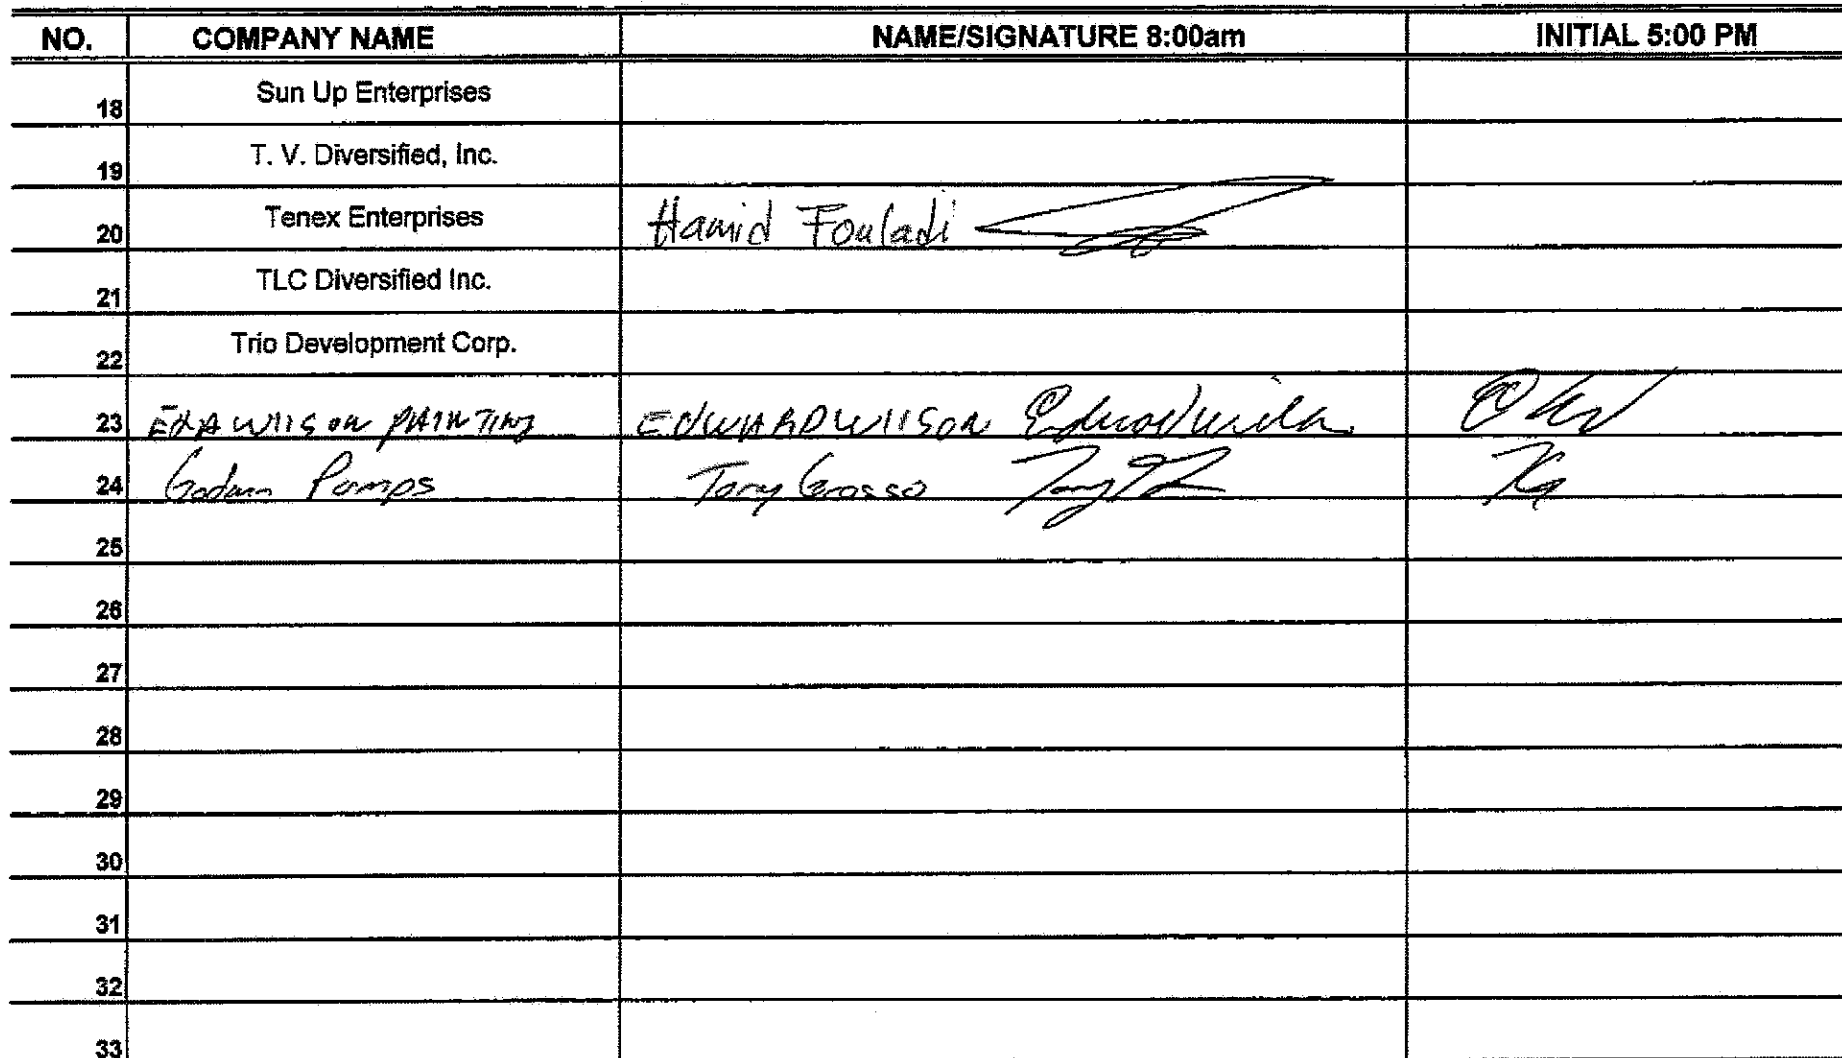 NO. COMPANY NAME NAME/SIGNATURE 8:00am INITIAL 5:00 PM
18 Sun Up Enterprises
19 T. V. Diversified, Inc.
20 Tenex Enterprises Hamid Fouladi
21 TLC Diversified Inc.
22 Trio Development Corp.
23 WIISON PAINTING EDWARD WIISON
24 Godwin Pumps Tony Grosso TG
25
26
27
28
29
30
31
32
33